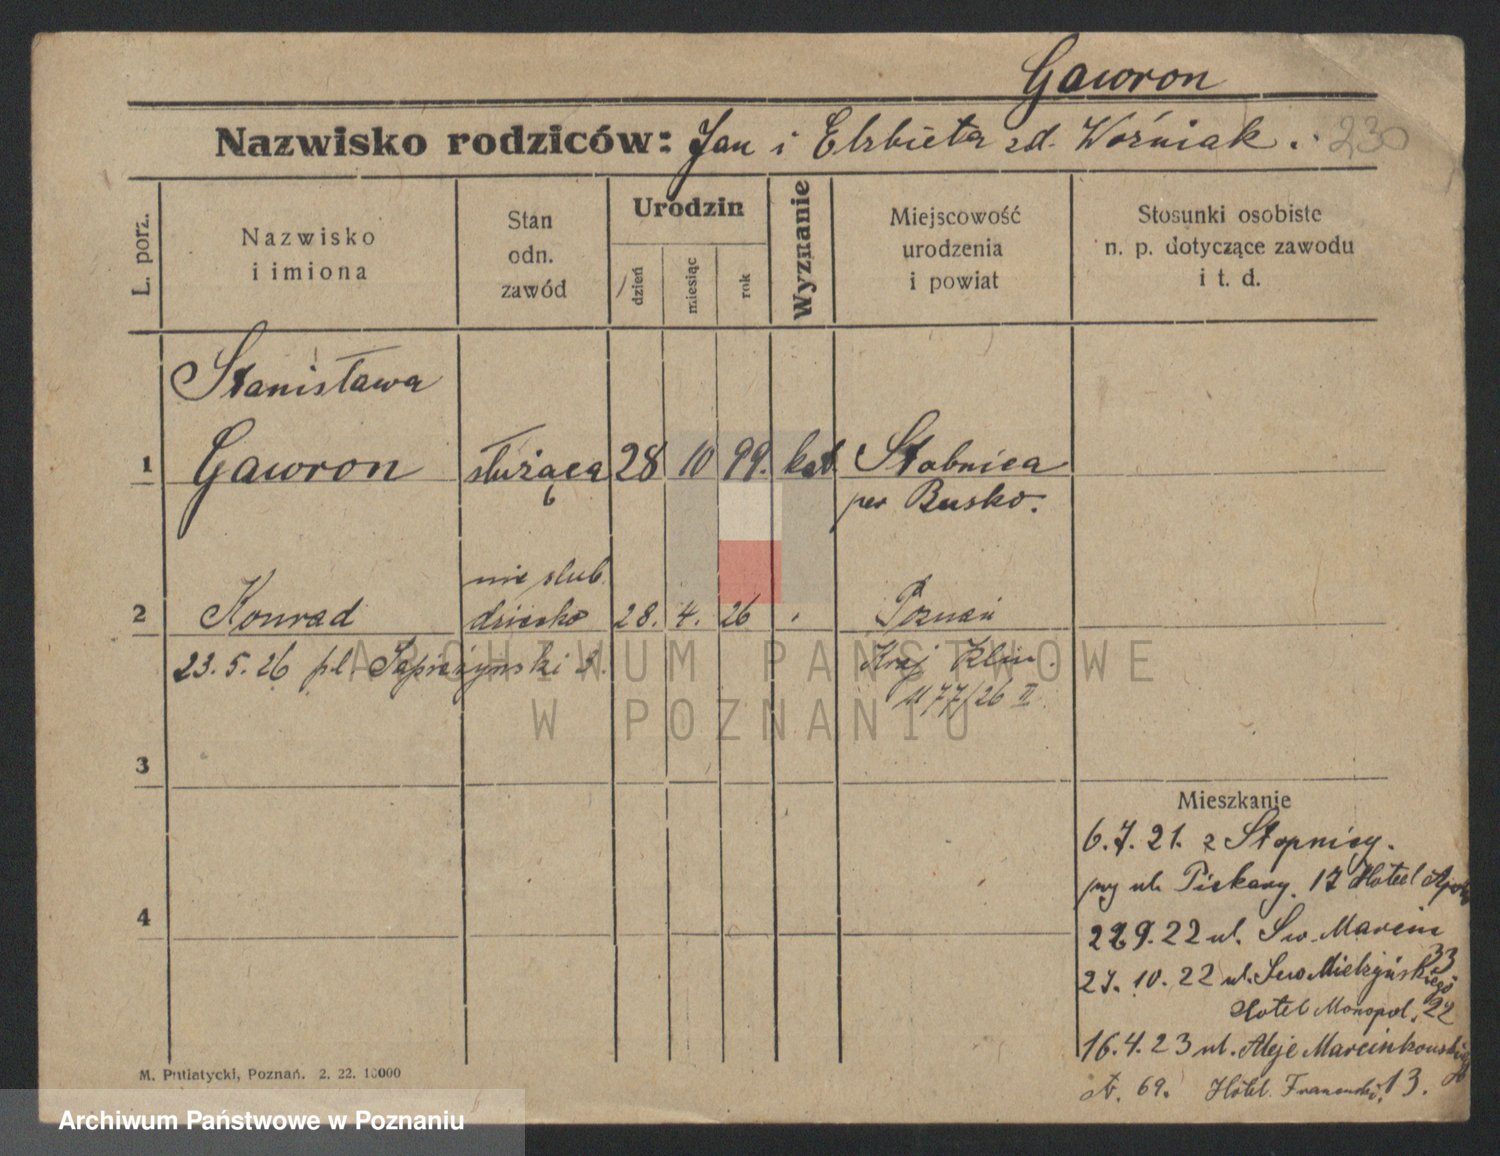 Gawron
Nazwisko rodziców: Jan i Elzbieta zd. Woźniak. 230
L. porz.
Nazwisko
i imiona
Stan
odn.
zawód
Urodzin
dzień
miesiąc
rok
Wyznanie
Miejscowość
urodzenia
i powiat
Stosunki osobiste
n. p. dotyczące zawodu
i t. d.
Stanisława
1 Gawron służąca 28 10 99. kat Stobnica
pow Busko.
nie ślub.
2 Konrad dziecko 28. 4. 26 Poznań
23. 5. 26 pl. Sapieżynski 3. Kraj Klin.
1177/26 II
3
Mieszkanie
6. 7. 21. z Stopnicy.
przy ul. Piekary. 17 Hotel Apollo
4
22 9. 22 ul. Sw. Marcin 33
27. 10. 22 ul. Mielzyńskiego
Hotel Monopol. 22
16. 4. 23 ul. Aleje Marcinkowskiego
69. Hôtel Francuski. 13.
M. Putiatycki, Poznań. 2. 22. 10000
ARCHIWUM PAŃSTWOWE
W POZNANIU
Archiwum Państwowe w Poznaniu